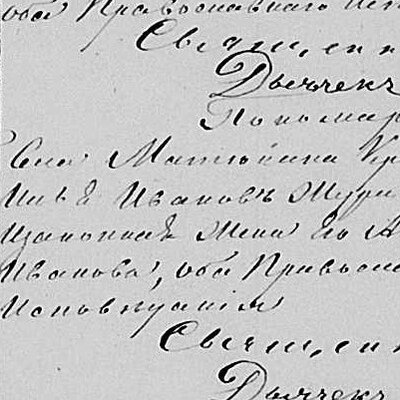 оба Православнаго Исп
Священн
Дьячекъ
Пономар
Села Матюшина Кр
Иванъ Ивановъ Жур
и законная Жена его А
Иванова, оба Правосла
Исповедания
Священ
Дьячекъ